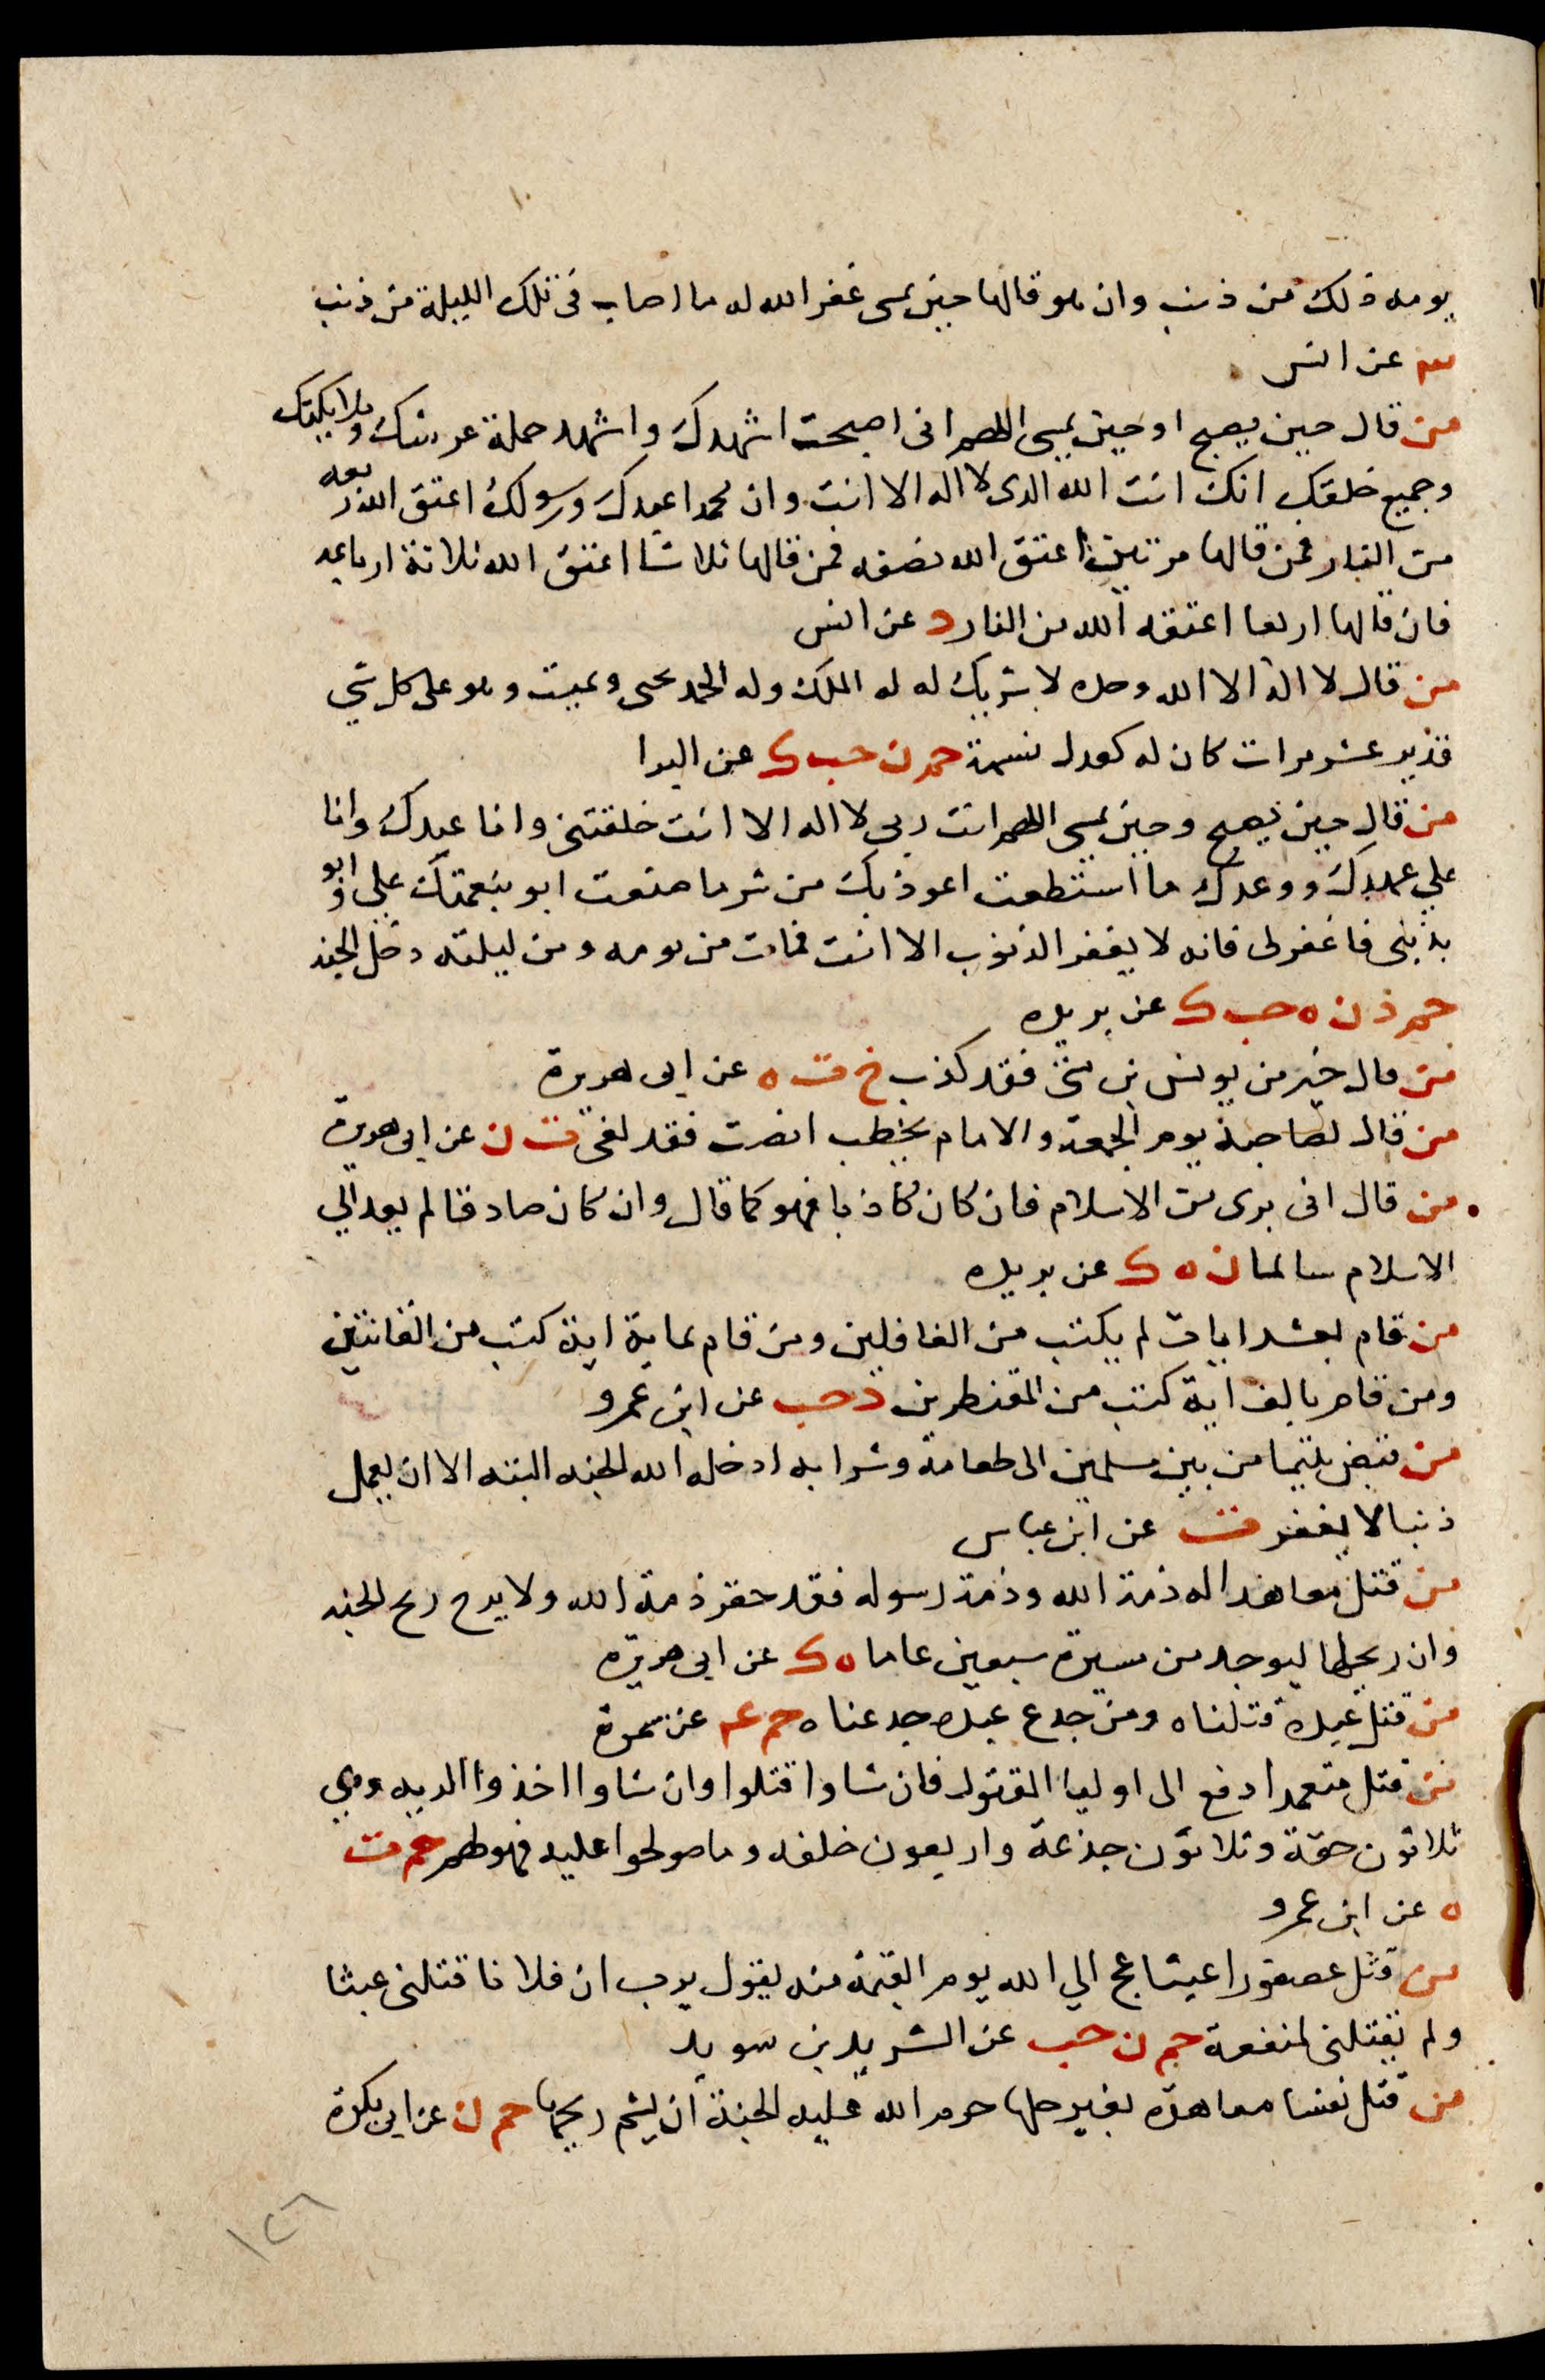 يومه ذلك من ذنب وان هو قالها حين يمسى غفر الله له ما اصاب فى تلك الليلة من ذنب
عن انس
من قال حين يصبح او حين يمسى اللهم انى اصبحت اشهدك واشهد حملة عرشك وملايكتك
وجميع خلقك انك انت الله الدى لا اله الا انت وان محمدا عبدك ورسولك اعتق الله ربعه
من النار فمن قالها مرتين اعتق الله نصفه فمن قالها ثلاثا اعتق الله ثلاثة ارباعه
فان قالها اربعا اعتقه الله من النار د عن انس
من قال لا اله الا الله وحده لا شريك له له الملك وله الحمد يحى ويميت وهو على كل شي
قدير عشر مرات كان له كعدل نسمة حم ن حب ك عن البرا
من قال حين يصبح وحين يمسى اللهم انت ربى لا اله الا انت خلقتنى وانا عبدك وانا
علي عهدك ووعدك ما استطعت اعوذ بك من شر ما صنعت ابو بنعمتك على وابو
بذنبى فاغفر لى فانه لا يغفر الذنوب الا انت فمات من يومه ومن ليلته دخل الجنه
حم د ن ه حب ك عن بريده
من قال خير من يونس بن متى فقد كذب خ ت ه عن ابى هريرة
من قال لصاحبه يوم الجمعة والامام يخطب انصت فقد لغى ت ن عن ابى هريرة
من قال انى برى من الاسلام فان كان كاذبا فهو كما قال وان كان صادقا لم يعد الي
الاسلام سالما ن ه ك عن بريده
من قام بعشر ايات لم يكتب من الغافلين ومن قام بماية اية كتب من القانتين
ومن قام بالف اية كتب من المقنطرين د حب عن ابن عمرو
من قبض يتيما من بين مسلمين الى طعامه وشرابه ادخله الله الجنه البته الا ان يعمل
ذنبا لا يغفر ت عن ابن عباس
من قتل معاهدا له ذمة الله وذمة رسوله فقد حقر ذمة الله ولا يرح ريح الجنه
وان ريحها ليوجد من مسيرة سبعين عاما ه ك عن ابى هريره
من قتل عبده قتلناه ومن جدع عبده جدعناه حم عه عن سمرة
من قتل متعمدا دفع الى اوليا المقتول فان شاوا قتلوا وان شاوا اخذوا الديه وهي
ثلاثون حقة وثلاثون جذعة واربعون خلفه وما صولحوا عليه فهو لهم حم ت
ه عن ابن عمرو
من قتل عصفورا عبثا عج الي الله يوم القيمة منه يقول يرب ان فلانا قتلنى عبثا
ولم يقتلنى لمنفعة حم ن حب عن الشريد بن سويد
من قتل نفسا معاهدة بغير حلها حرم الله عليه الجنة ان يشم ريحها حم ن عن ابى بكرة
١٢٦